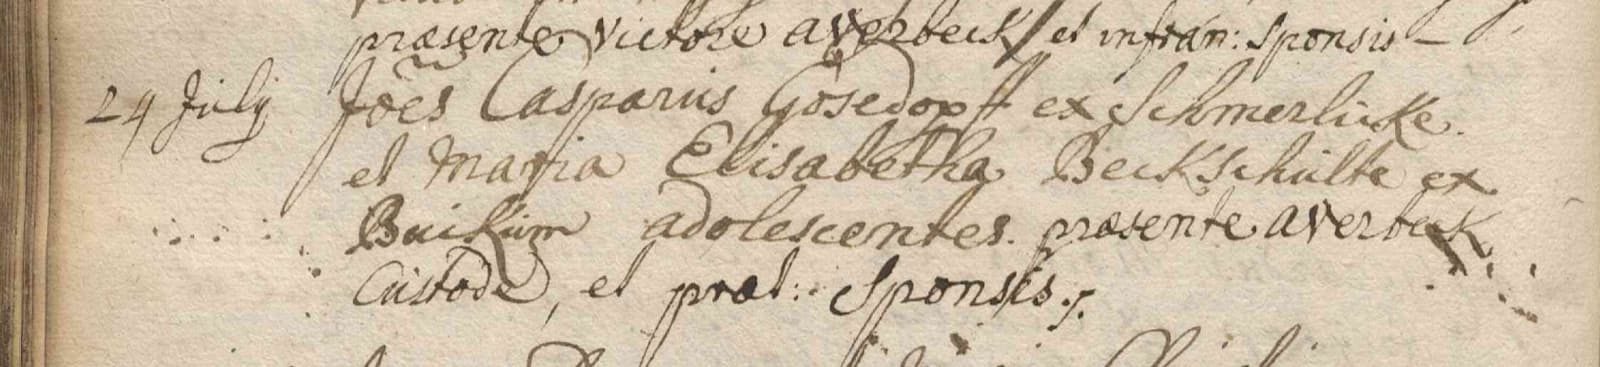 præsente victore averbeck et infran: Sponsis –
24 July Joẽs Casparus Gosedopff ex Schmerlicke.
et Maria Elisabetha Beckschulte ex
Buikum adolescentes. præsente averbeck
Custode, et præl: Sponsis.